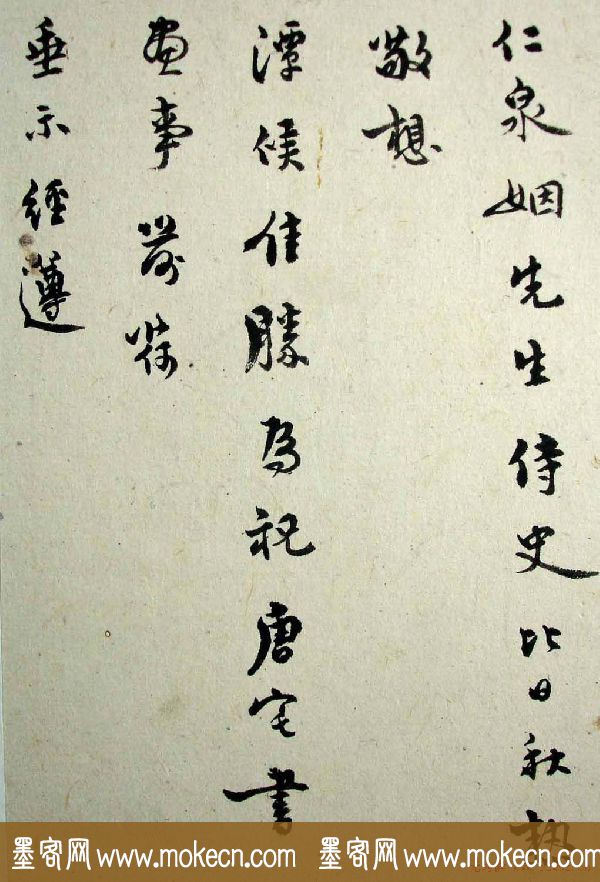 仁泉姻先生侍史比日秋
敬想
潭候佳勝為祝唐宅書
畫事前荷
垂示經遵
墨客网 www.mokecn.com 墨客网 www.mokecn.com